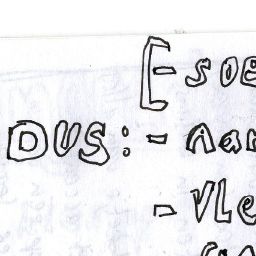 [- soe
DUS: - Aar
- vle